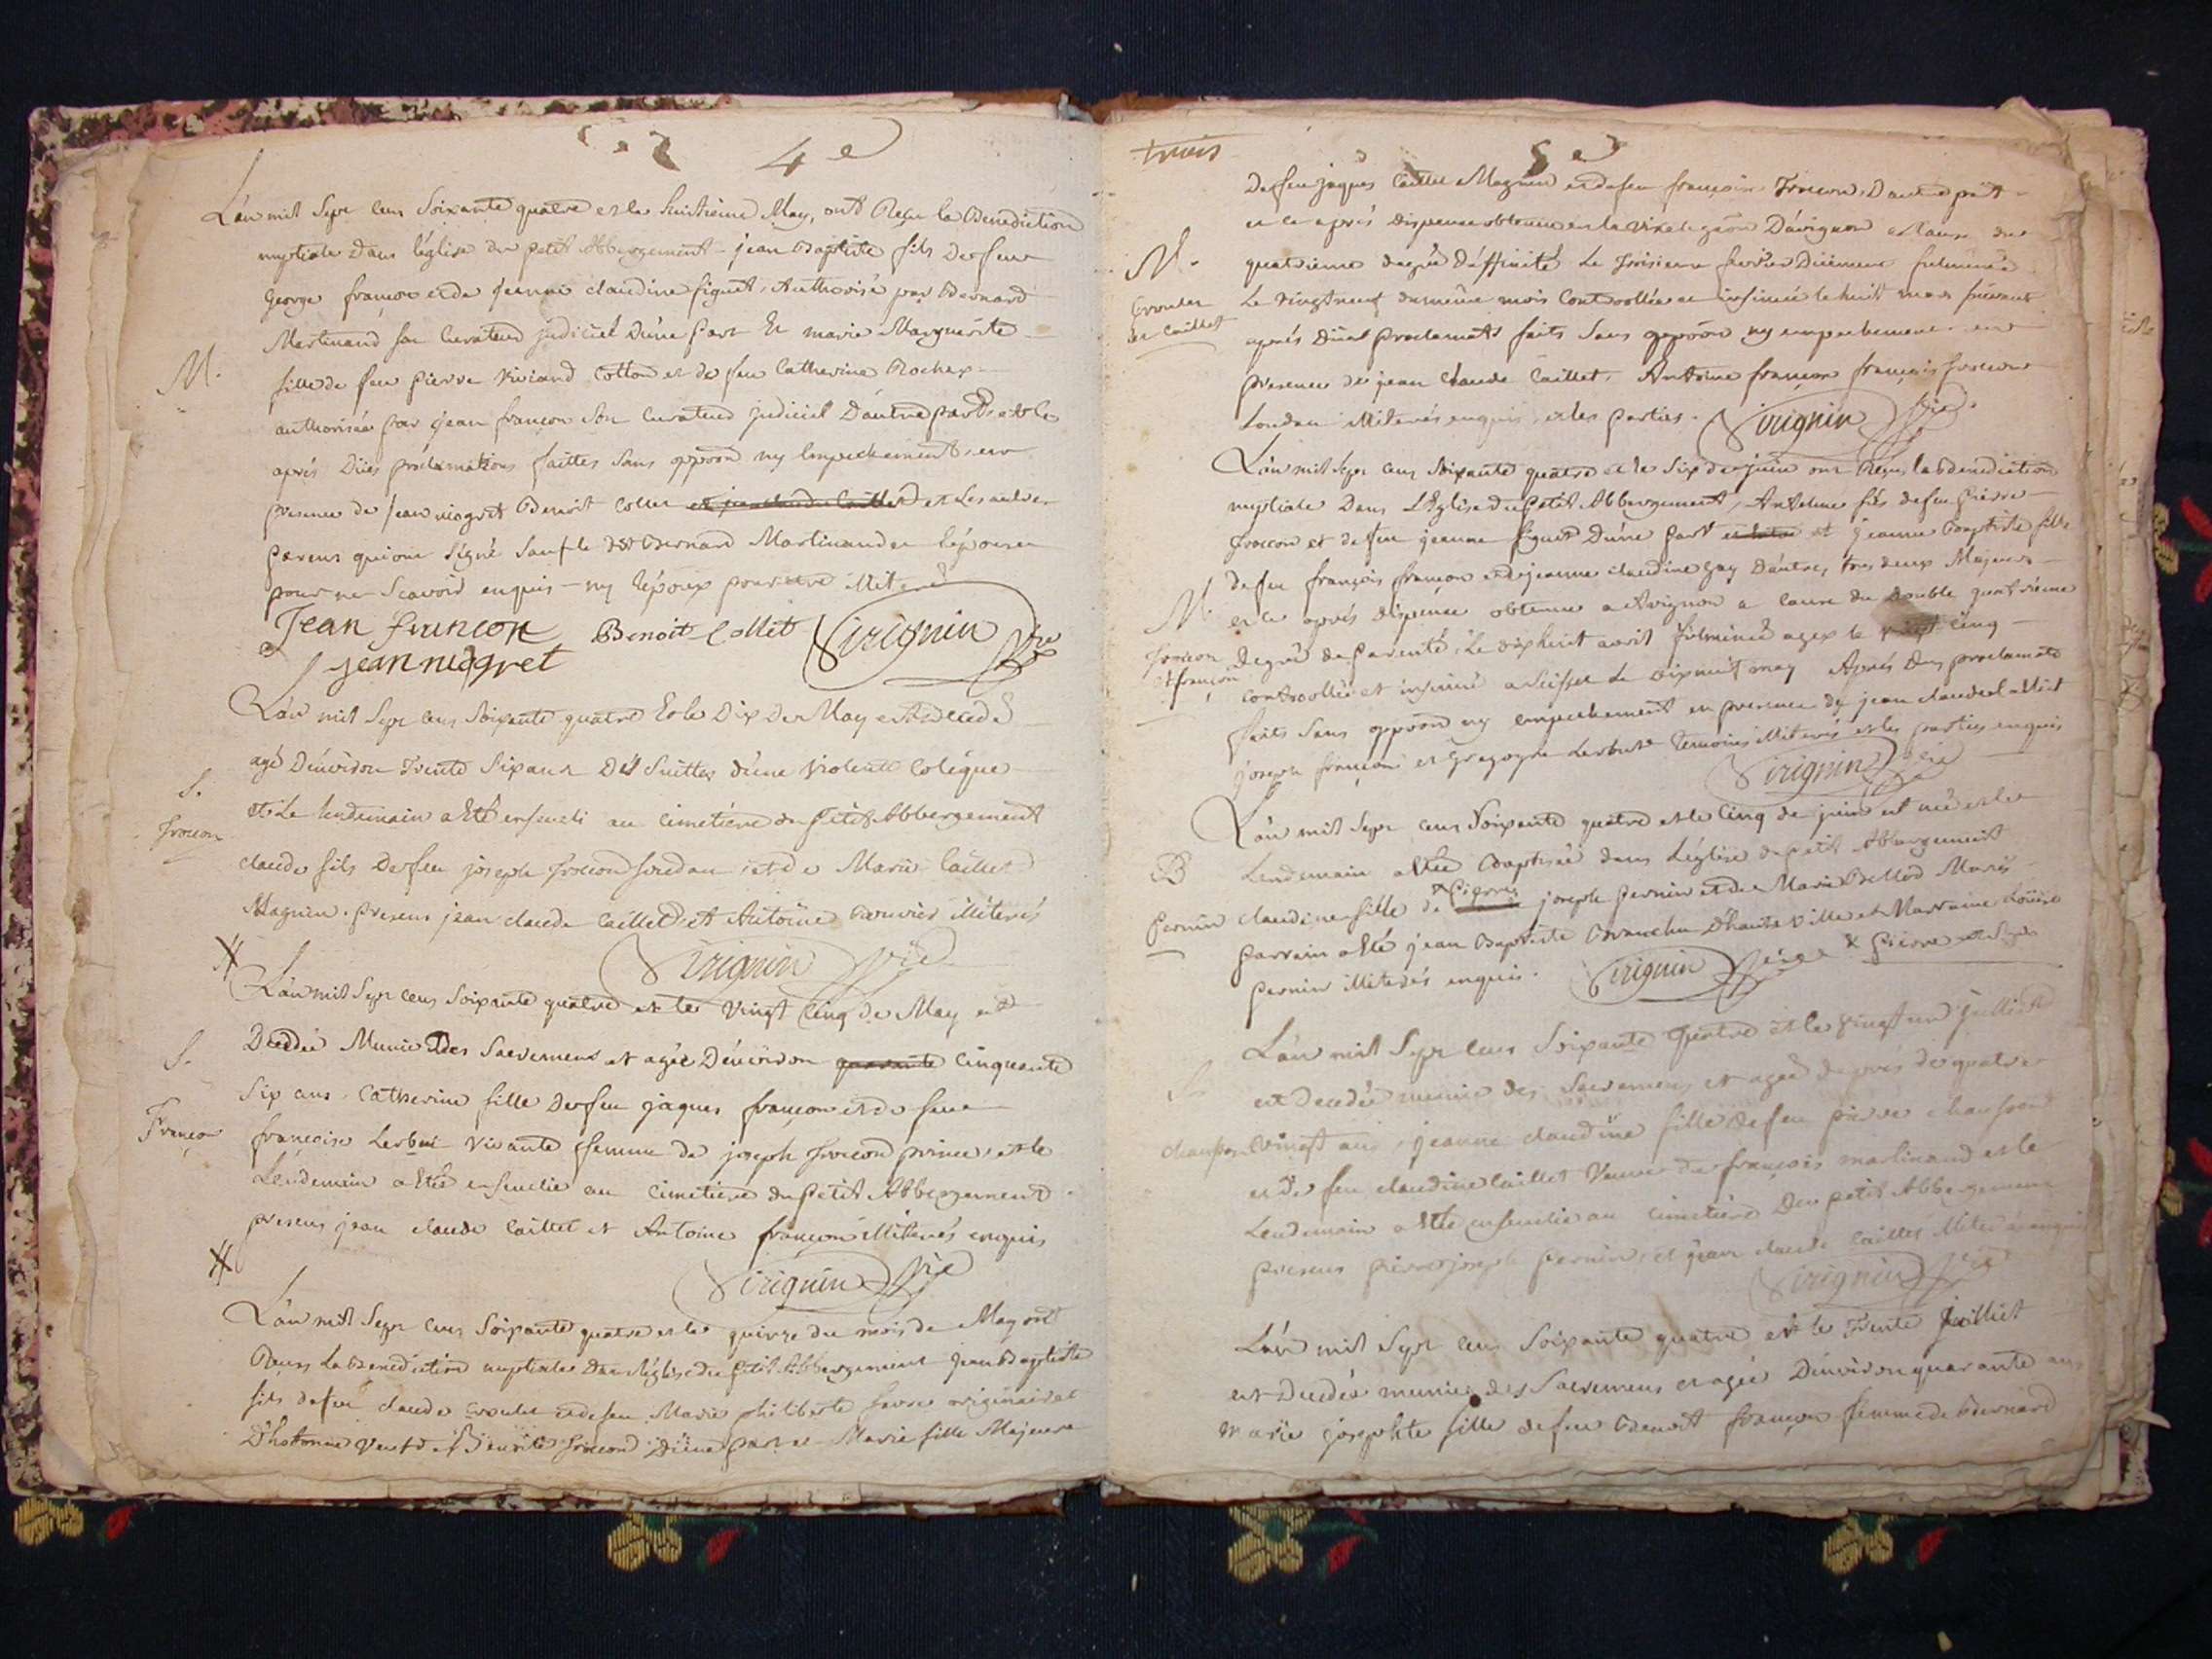 4e
L'an mil Sept cens Soixante quatre et le huitieme May, ont Reçu la Benediction
nuptiale Dans léglise du petit Abbergement jean Baptiste fils De feu
George françon et de jeanne claudine figuet, Authorisé par Bernard
Martinand son Curateur judiciel Dúne part Et marie Marguerite
M.
fille de feu pierre Cotton et de feu Catherine Rochex
authorisée par jean françon Son Curateur judiciel Dáutre part, et ce
aprés Düës proclamations faittes Sans oppoōn ny Empechement, en
presence de jean niogret Benoit Collet et jean claude Caillet et Les autres
parens qui ont Signé Sauf le dt Bernard Martinand et lépouse
pour ne Scavoir enquis ny lépoux pour etre illiteré
Jean françon Benoit Collet Virignin Vire
jean niogret
L'an mil Sept cens Soixante quatre Et le Dix De May est decedé
agé Dénviron Trente Six ans Des Suittes dúne violente Coleque
S.
et Le lendemain a Eté enseveli au cimetiére du petit Abbergement
froccon
claude fils De feu joseph froccon et de Marie Caillet
Magnin. presens jean claude Caillet et Antoine illiterés
Virignin Vire
L'an mil Sept cens Soixante quatre et le vingt Cinq de May est
S.
Decedée Munie Des Sacremens et agée Dénviron quarante Cinquante
Six ans. Catherine fille De feu jaques françon et de feue
Françon
françoise vivante femme de joseph froccon prince, et le
Lendemain a Eté ensevelie au Cimetiere du petit Abbergement
presens jean claude Caillet et Antoine françon illiterés enquis
Virignin Vire
L'an mil Sept cens Soixante quatre et le quinze du mois de May ont
Reçus La Benediction nuptiale Dans léglise du petit Abbergement jean Baptiste
fils de feu claude et de feu Marie philiberte favre originaire
D'hotonne veuf de froccon Dúne part et Marie fille Majeure
trois
5e
De feu jaques Caillet Magnin et de feu françoise froccon, Dautre part
et ce aprés Dispense obtenue en la D'avignon a Cause du
M.
quatriéme degré D'affinité Le Troisieme fulminée
Le vingt neuf du même mois Controollée et insinuée le huit mars suivant
et Caillet
aprés Düës proclamats faits Sans oppoōn ny empechement en
presence de jean claude Caillet, Antoine françon françois froccon
illiterés enquis, et les parties. Virignin Vire
L'an mil Sept cens Soixante quatre et le Six de juin ont Reçu la Benediction
nuptiale Dans L'église du petit Abbergement, Antelme fils de feu pierre
froccon et de feu jeanne figuet Dúne part et jeanne Baptiste fille
de feu françois françon et de jeanne claudine gay Dáutre, tous deux Majeurs
M.
et ce aprés dispense obtenue a Avignon a Cause du Double quatriéme
froccon
Degré de parenté, Le dix huit avril fulminée a gex le vingt cinq
et françon
controollée et insinuée a Seissel Le dix neuf may Aprés Dus proclamats
faits Sans oppoōn ny empechement en presence de jean claude Caillet
joseph françon et temoins illiterés et les parties enquis
Virignin Vire
L'an mil Sept cens Soixante quatre et le Cinq de juin est née et le
B
Lendemain a Eté Baptisée dans L'église du petit Abbergement
pernin
claudine fille de pierre joseph pernin et de Marie Mariés
parrain a Eté jean Baptiste D'hauteville et Marraine
pernin illiterés enquis. Virignin Vire x pierre
L'an mil Sept cens Soixante quatre et le vingt un juilliet
S.
est decedée munie des Sacremens et agée de prés de quatre
vingt ans, jeanne claudine fille de feu pierre
et de feu claudine Caillet Veuve de françois martinand et le
Lendemain a Eté ensevelie au Cimetiere Du petit Abbergement
presens pierre joseph pernin, et jean claude Caillet illiterés enquis
Virignin Vire
L'an mil Sept cens Soixante quatre et le Trente juilliet
est Decedée munie des Sacremens et agée Dénviron quarante ans
Marie josephte fille de feu Benoit françon femme de Bernard